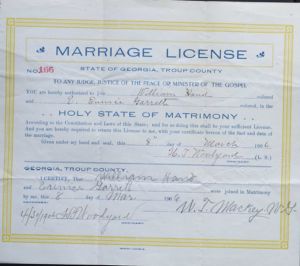 MARRIAGE LICENSE
STATE OF GEORGIA, TROUP COUNTY
No. 166
TO ANY JUDGE, JUSTICE OF THE PEACE OR MINISTER OF THE GOSPEL
YOU are hereby authorized to join William Hand colored
and E. Eunice Garrett colored, in the
HOLY STATE OF MATRIMONY
According to the Constitution and Laws of this State; and for so doing this shall be your sufficient License.
And you are hereby required to return this License to me, with your certificate hereon of the fact and date of
the marriage.
Given under my hand and seal, this 8 day of March 1906
H. T. Woodyard (L. S.)
GEORGIA, TROUP COUNTY.
I CERTIFY, That William Hand
and Eunice Garrett were joined in Matrimony
by me, this 8 day of Mar 1906
W. T. Mackey
Woodyard